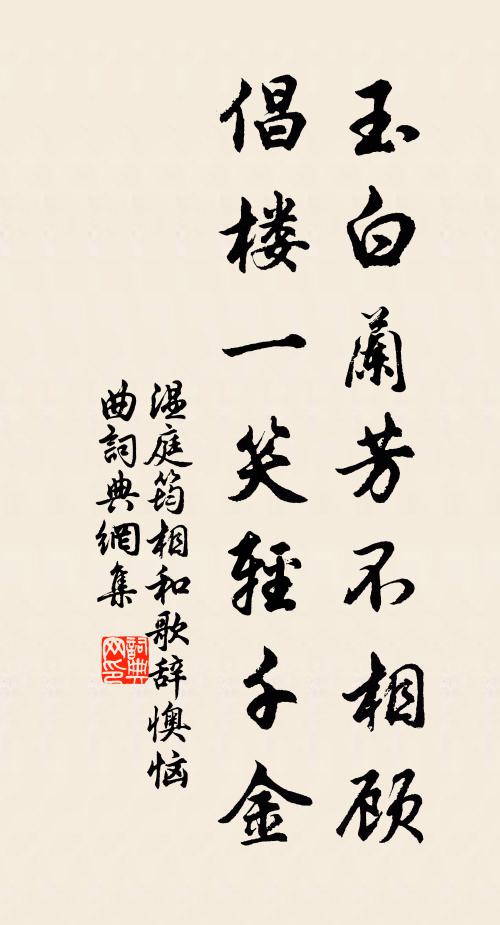 玉白蘭芳不相顾
倡楼一笑輕千金
温庭筠相和歌辞懊恼
曲詞典網集
詞典
网印